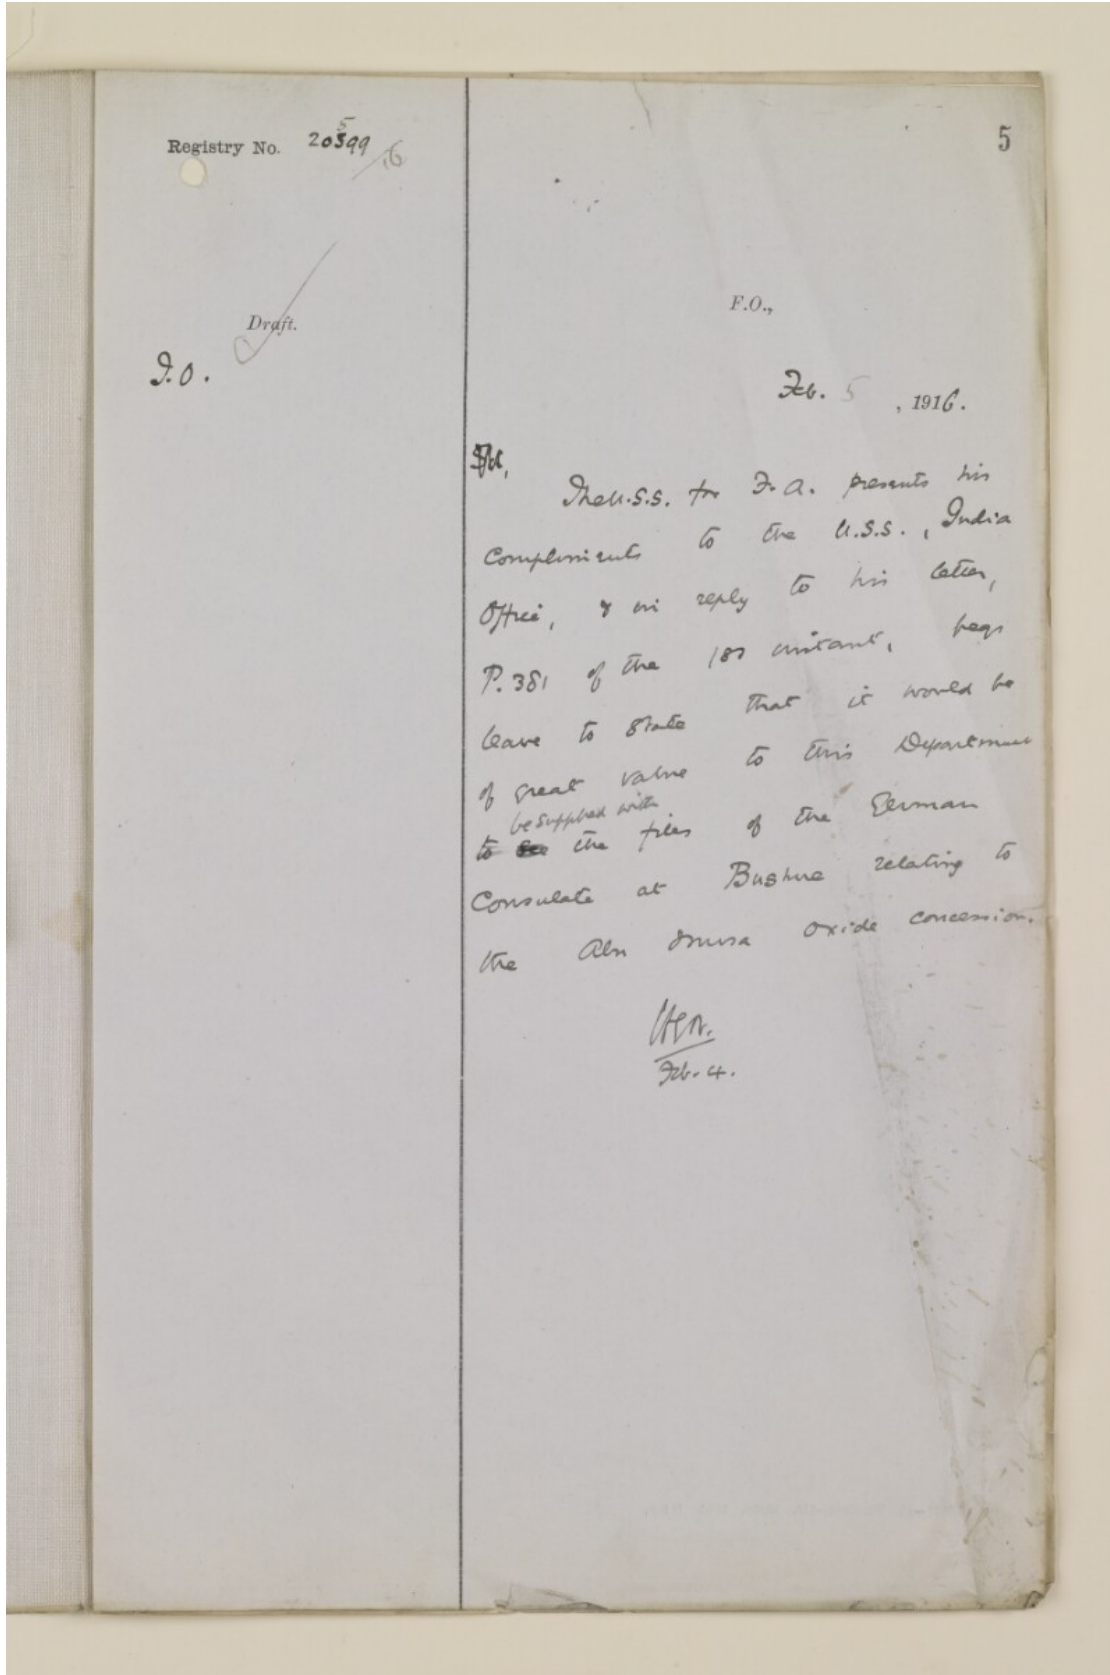 Registry No. 20599/16
5
Draft.
I.O.
F.O.,
Feb. 5, 1916.
The U.S.S. for F.A. presents his
compliments to the U.S.S., India
Office, & in reply to his letter,
P. 381 of the instant, begs
leave to state that it would be
of great value to this Department
be supplied with
to see the files of the German
Consulate at Bushire relating to
the Abu Musa oxide concession.
Feb. 4.